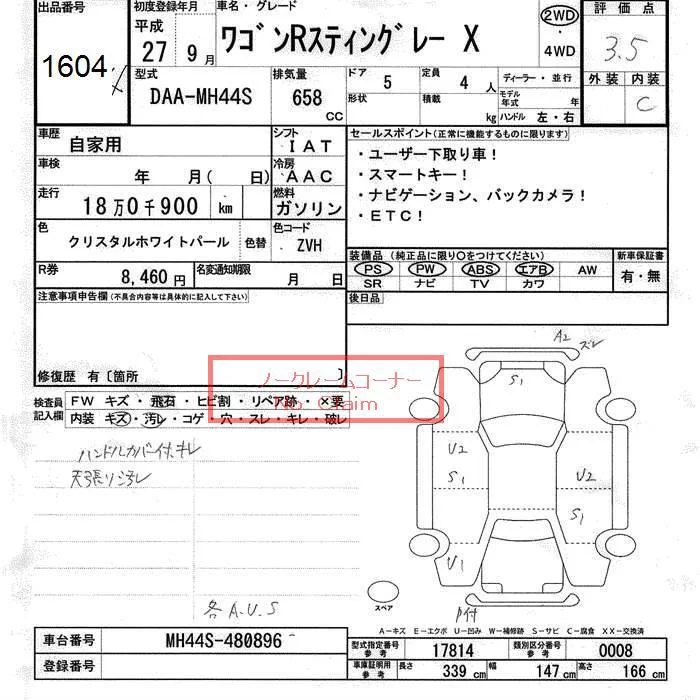 出品番号 初度登録年月 車名・グレード 2WD 評価点
1604 平成 27 9月 ワゴンRスティングレー X 4WD 3.5
型式 排気量 ドア 5 定員 4人 ディーラー・並行 外装 内装
DAA-MH44S 658 CC 形状 積載 kg モデル年式 年 C
ハンドル 左・右
車歴 自家用 シフト IAT セールスポイント(正常に機能するものに限ります)
車検 年 月( 日) 冷房 AAC ・ユーザー下取り車!
・スマートキー!
走行 18万0千900 km 燃料 ガソリン ・ナビゲーション、バックカメラ!
・ETC!
色 クリスタルホワイトパール 色替 色コード ZVH
装備品 (純正品に限り○をつけてください) 新車保証書
R券 8,460円 名変通知期限 月 日 PS PW ABS エアB AW 有・無
SR ナビ TV カワ
注意事項申告欄(不具合内容等は具体的に記入して下さい) 後日品
修復歴 有〔箇所 〕
ノークレームコーナー
No Claim
検査員 FW キズ・飛石・ヒビ割・リペア跡・×要
記入欄 内装 キズ・汚レ・コゲ・穴・スレ・キレ・破レ
ハンドルカバー付、キレ
天張リ汚レ
各 A.U.S
A2 ズレ
S1
U2 U2
S1 S1
U1
P付
スペア
A-キズ E-エクボ U-凹み W-補修跡 S-サビ C-腐食 XX-交換済
車台番号 MH44S-480896 型式指定番号 参考 17814 類別区分番号 参考 0008
登録番号 車庫証明用 参考 長さ 339 cm 幅 147 cm 高さ 166 cm